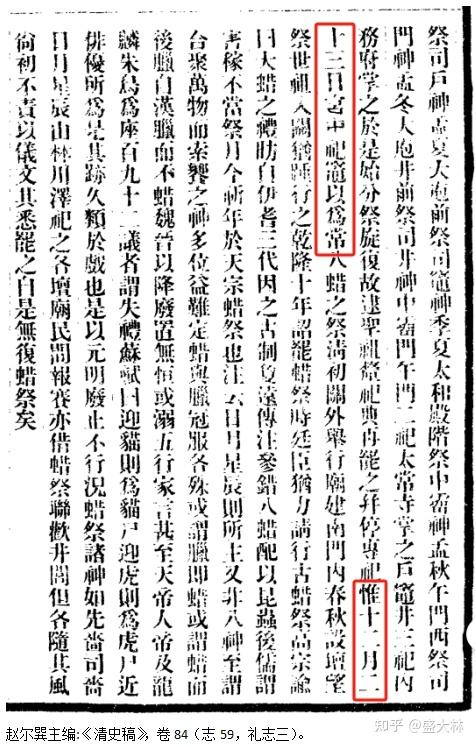 祭司戶神孟夏大庖前祭司竈神季夏太和殿階祭中霤神孟秋午門西祭司
門神孟冬大庖井前祭司井神中霤門午門二祀太常寺掌之戶竈井三祀內
務府掌之於是始分祭旋復故逮聖祖釐祀典再罷之幷停專祀惟十二月二
十三日宮中祀竈以爲常八蜡之祭淸初關外舉行廟建南門內春秋設壇望
祭世祖入關猶踵行之乾隆十年詔罷蜡祭時廷臣猶力請行古蜡祭高宗諭
曰大蜡之禮昉自伊耆三代因之古制夐遠傳注參錯八蜡配以昆蟲後儒謂
害稼不當祭月令祈年於天宗蜡祭也注云日月星辰則所主又非八神至謂
合聚萬物而索饗之神多位益難定蜡與臘冠服各殊或謂臘卽蜡或謂蜡而
後臘自漢臘而不蜡魏晉以降廢置無恒或溺五行家言甚至天帝人帝及龍
麟朱鳥爲座百九十二議者謂失禮蘇軾曰迎貓則爲貓尸迎虎則爲虎尸近
俳優所爲是其跡久類於戲也是以元明廢止不行況蜡祭諸神如先嗇司嗇
日月星辰山林川澤祀之各壇廟民間報賽亦借蜡祭聯歡井閭但各隨其風
尙初不責以儀文其悉罷之自是無復蜡祭矣
知乎 @盛大林
赵尔巽主编:《清史稿》，卷 84（志 59，礼志三）。